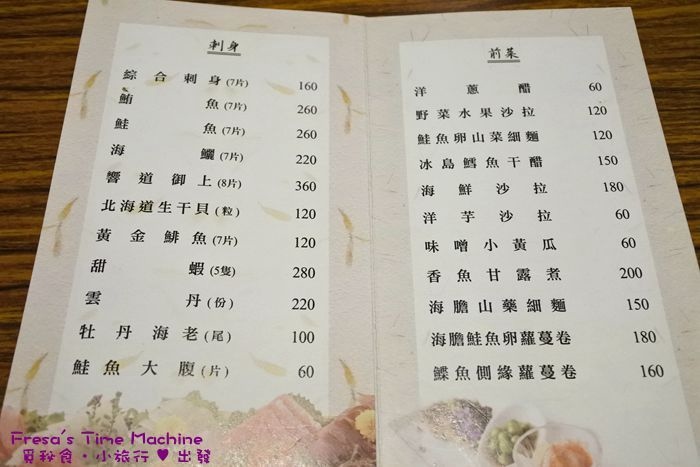 刺身
綜合刺身(7片) 160
鮪魚(7片) 260
鮭魚(7片) 260
海鱺(7片) 220
響道御上(8片) 360
北海道生干貝(粒) 120
黃金鯡魚(7片) 120
甜蝦(5隻) 280
雲丹(份) 220
牡丹海老(尾) 100
鮭魚大腹(片) 60
前菜
洋蔥醋 60
野菜水果沙拉 120
鮭魚卵山菜細麵 120
冰島鱈魚干醋 150
海鮮沙拉 180
洋芋沙拉 60
味噌小黃瓜 60
香魚甘露煮 200
海膽山藥細麵 150
海膽鮭魚卵蘿蔓卷 180
鰈魚側緣蘿蔓卷 160
Fresa's Time Machine
覓秘食・小旅行♥出發